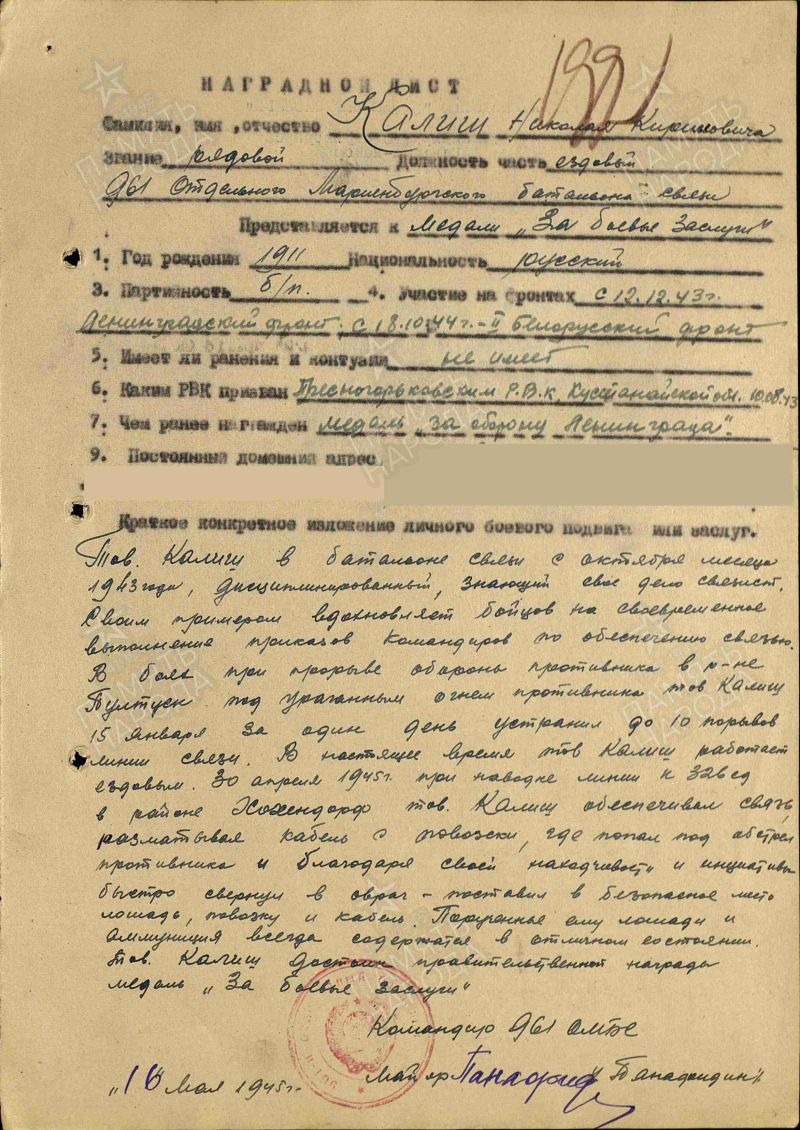 1991
НАГРАДНОЙ ЛИСТ
Фамилия, имя, отчество Калиш Николая Кириловича
Звание рядовой Должность часть ездовый
961 Отдельного Мариенбургского батальона связи
Представляется к медали „За боевые заслуги"
1. Год рождения 1911 Национальность русский
3. Партийность б/п. 4. Участие на фронтах с 12.12.43г.
Ленинградский фронт. с 18.10.44г. - II Белорусский фронт
5. Имеет ли ранения и контузии не имеет
6. Каким РВК призван Пресногорьковским Р.В.К, Кустанайской обл. 10.08.43
7. Чем ранее награжден медаль „за оборону Ленинграда".
9. Постоянный домашний адрес
Краткое конкретное изложение личного боевого подвига или заслуг.
Тов. Калиш в батальоне связи с октября месяца
1943 года, дисциплинированный, знающий свое дело связист.
Своим примером вдохновляет бойцов на своевременное
выполнение приказов командиров по обеспечению связью.
В боях при прорыве обороны противника в р-не
Пултуск под ураганным огнем противника тов Калиш
15 января за один день устранил до 10 порывов
линии связи. В настоящее время тов Калиш работает
ездовым. 30 апреля 1945г. при наводке линии к 326 сд
в районе тов. Калиш обеспечивал связь,
разматывая кабель с повозки, где попал под обстрел
противника и благодаря своей находчивости и инициативы
быстро свернул в овраг - поставил в безопасное место
лошадь, повозку и кабель. Порученные ему лошади и
аммуниция всегда содержатся в отличном состоянии.
Тов. Калиш достоин правительственной награды
медаль „За боевые заслуги"
Командир 961 ОМБС
майор /Панафидин/
„16" мая 1945г.